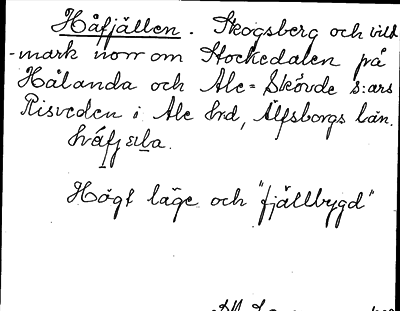 Håfjällen. Skogsberg och vild
-mark norr om Stockedalen på
Hålanda och Ale-Skövde s:ars
Risveden i Ale hrd, Älfsborgs län.
Högt läge och "fjällbygd"